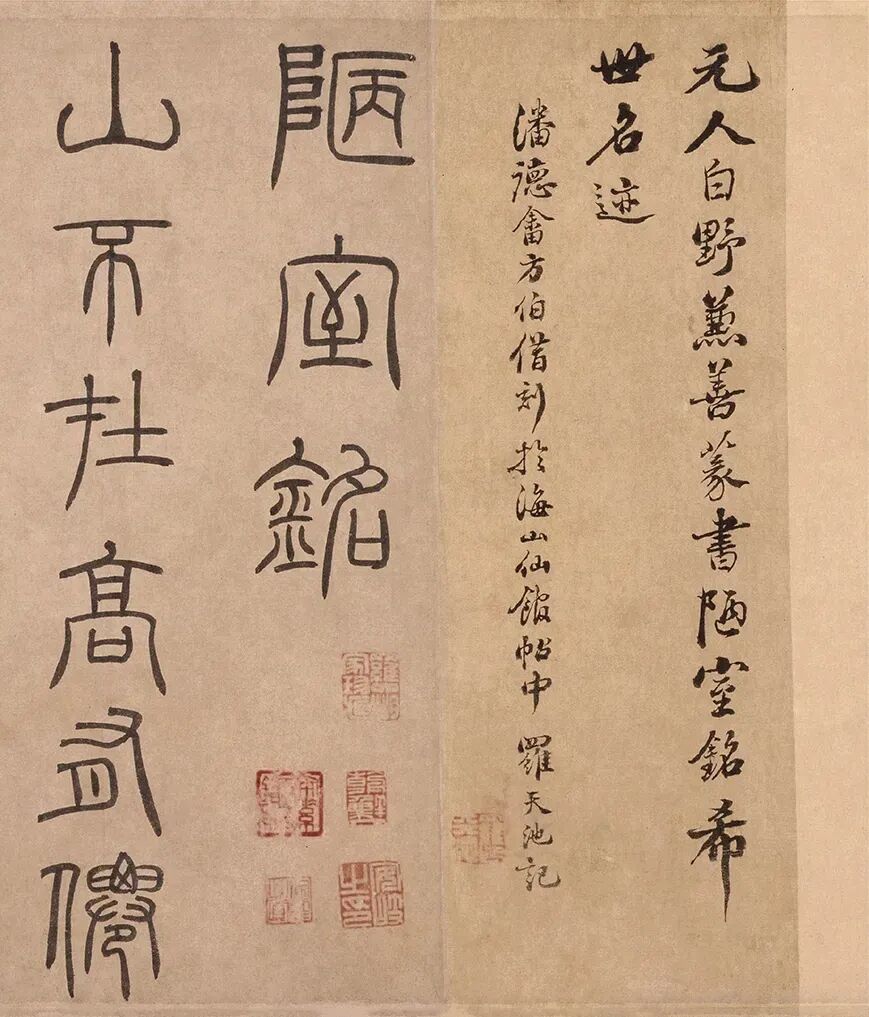 元人白野兼善篆書陋室銘希
世名迹
潘德畬方伯借刻於海山仙館帖中 羅天池記
陋室銘
山不在高有僊